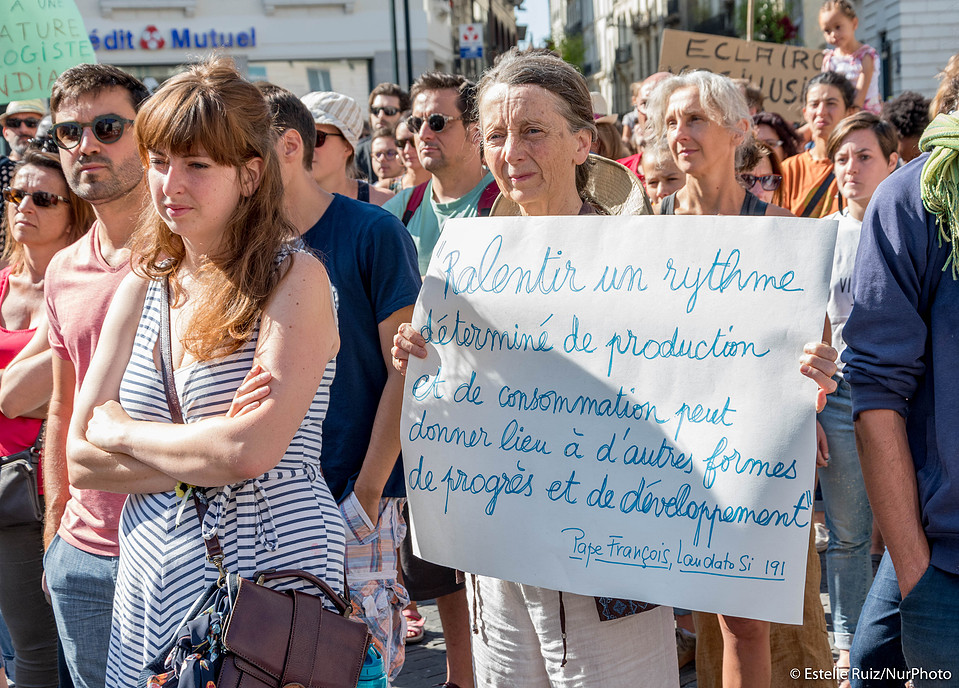 A UNE
NATURE
LOGISTE
NDIA
Crédit Mutuel
ECLAIRO
"Ralentir un rythme
déterminé de production
et de consommation peut
donner lieu à d'autres formes
de progrès et de développement"
Pape François, Laudato Si 191
© Estelle Ruiz/NurPhoto